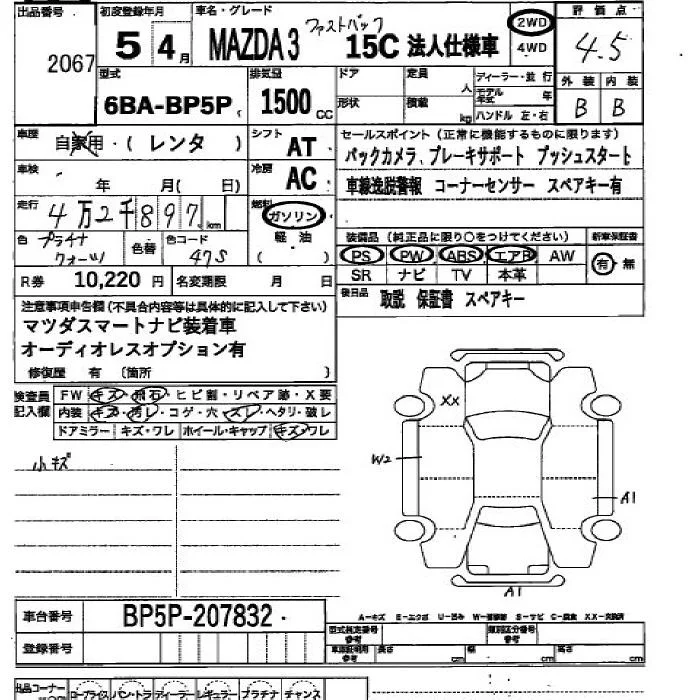 出品番号 2067
初度登録年月 5 4月
車名・グレード MAZDA3 ファストバック 15C 法人仕様車
2WD
4WD
評価点 4.5
外装 B 内装 B
型式 6BA-BP5P
排気量 1500 CC
ドア 形状
定員 人 積載 kg
ディーラー・並行
モデル年式 年
ハンドル 左・右
車歴 自家用・(レンタ)
シフト AT
車検 年 月(日)
冷房 AC
走行 4万2千897 km
燃料 ガソリン 軽油 ( )
色 プラチナクォーツ 色替 色コード 47S
R券 10,220円 名変期限 月 日
セールスポイント(正常に機能するものに限ります)
バックカメラ、ブレーキサポート プッシュスタート
車線逸脱警報 コーナーセンサー スペアキー有
装備品(純正品に限り○をつけてください) 新車保証書
PS PW ABS エアB AW 有・無
SR ナビ TV 本革
後日品 取説 保証書 スペアキー
注意事項申告欄(不具合内容等は具体的に記入して下さい)
マツダスマートナビ装着車
オーディオレスオプション有
修復歴 有 (箇所 )
検査員記入欄
FW キズ・飛石・ヒビ割・リペア跡・X要
内装 キズ・汚レ・コゲ・穴・スレ・ヘタリ・破レ
ドアミラー キズ・ワレ ホイール・キャップ キズ・ワレ
小キズ
XX
W2
A1
A1
車台番号 BP5P-207832
登録番号
A-キズ E-エクボ U-凹み W-補修跡 S-サビ C-腐食 XX-交換済
型式指定番号 参考 類別区分番号 参考
車庫証明用 参考 長さ cm 幅 cm 高さ cm
出品コーナー